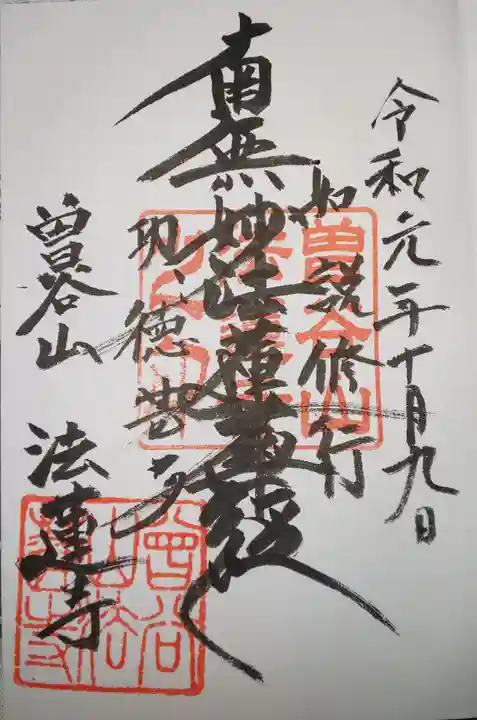 令和元年十月九日
如説修行
南無妙法蓮華経
功徳甚多
曽谷山 法蓮寺